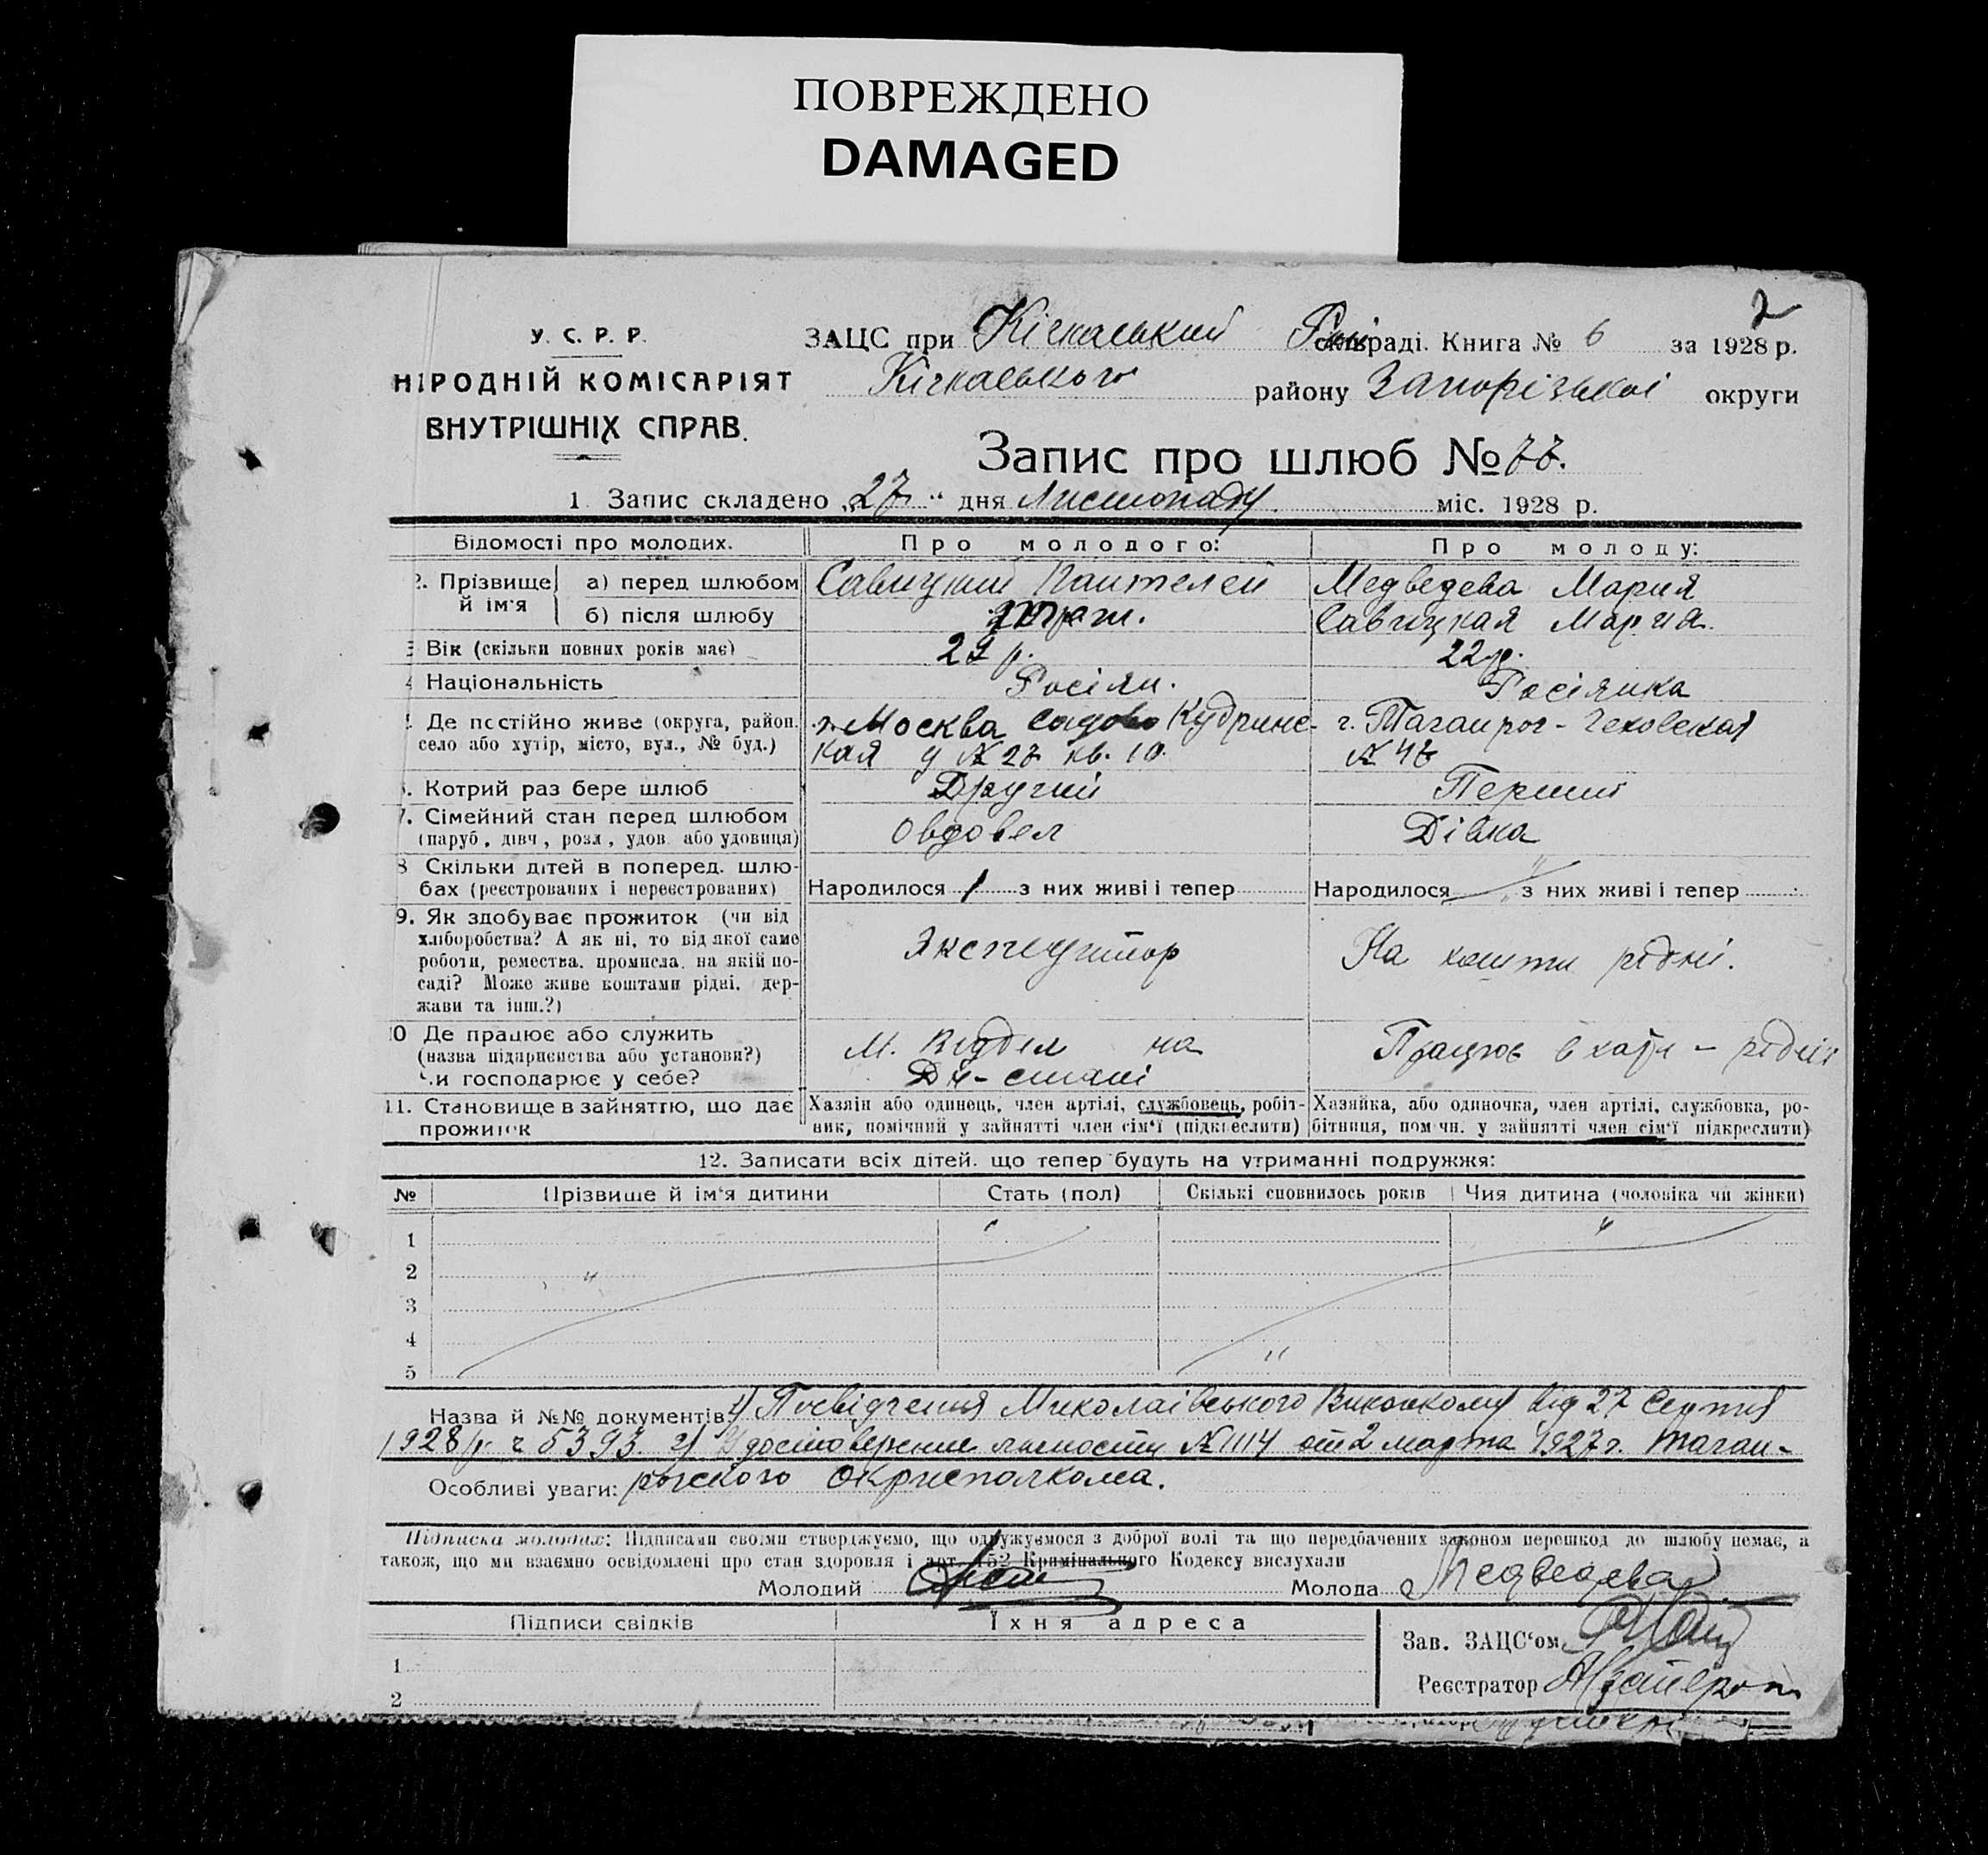 ПОВРЕЖДЕНО
DAMAGED
2
У. С. Р. Р.
НАРОДНІЙ КОМІСАРІЯТ
ВНУТРІШНІХ СПРАВ.
ЗАЦС при Кічкаський сільраді. Книга № 6 за 1928 р.
Кічкаського району Запорізькоі округи
Запис про шлюб № 77.
1 Запис складено „27“ дня Листопаду. міс. 1928 р.
Відомості про молодих. Про молодого: Про молоду:
2. Прізвище й ім'я а) перед шлюбом Савицкий Пантелей Медведева Мария
б) після шлюбу Савицкая Мария.
3 Вік (скільки повних років має) 29 р. 22 р.
4 Національність Росіян. Росіянка
5 Де постійно живе (округа, район. г. Москва Садово Кудринс- г. Таганрог - Чеховская
село або хутір, місто, вул., № буд.) кая д № 27 кв. 10. № 47
6. Котрий раз бере шлюб Другий Перший
7. Сімейний стан перед шлюбом Овдовел Дівка
(паруб., дівч., розл., удов. або удовиця)
8 Скільки дітей в поперед. шлю-
бах (реєстрованих і нереєстрованих) Народилося 1 з них живі і тепер Народилося з них живі і тепер
9. Як здобуває прожиток (чи від
хліборобства? А як ні, то від якої саме Экспедитор На кошти рідні.
роботи, ремества, промисла, на якій по-
саді? Може живе коштами рідні, дер-
жави та інш.?)
10 Де працює або служить М. Виддел на Працює в хаті - рідніх
(назва підприємства або установи?)
Чи господарює у себе?
11. Становище в зайняттю, що дає Хазяін або одинець, член артілі, службовець, робіт- Хазяйка, або одиночка, член артілі, службовка, ро-
прожиток ник, помічний у зайнятті член сім'ї (підкреслити) бітниця, помічн. у зайнятті член сім'ї підкреслити)
12. Записати всіх дітей, що тепер будуть на утриманні подружжя:
№ Прізвище й ім'я дитини Стать (пол) Скількі сповнилось років Чия дитина (чоловіка чи жінки)
1
2
3
4
5
Назва й №№ документів: 1) Посвідчення Миколаівського Виконкому від 27 Серпня
1928 р. ч 5393 2) Удостоверение личности № 1114 от 2 марта 1927 г. Таган-
Особливі уваги: рогского Окрисполкома.
Підписка молодих: Підписами своїми стверджуємо, що одружуємося з доброї волі та що передбачених законом перешкод до шлюбу немає, а
також, що ми взаємно освідомлені про стан здоровля і арт. 152 Кримінального Кодексу вислухали
Молодий Молода Медведева
Підписи свідків Їхня адреса
Зав. ЗАЦС'ом
1
Реєстратор
2